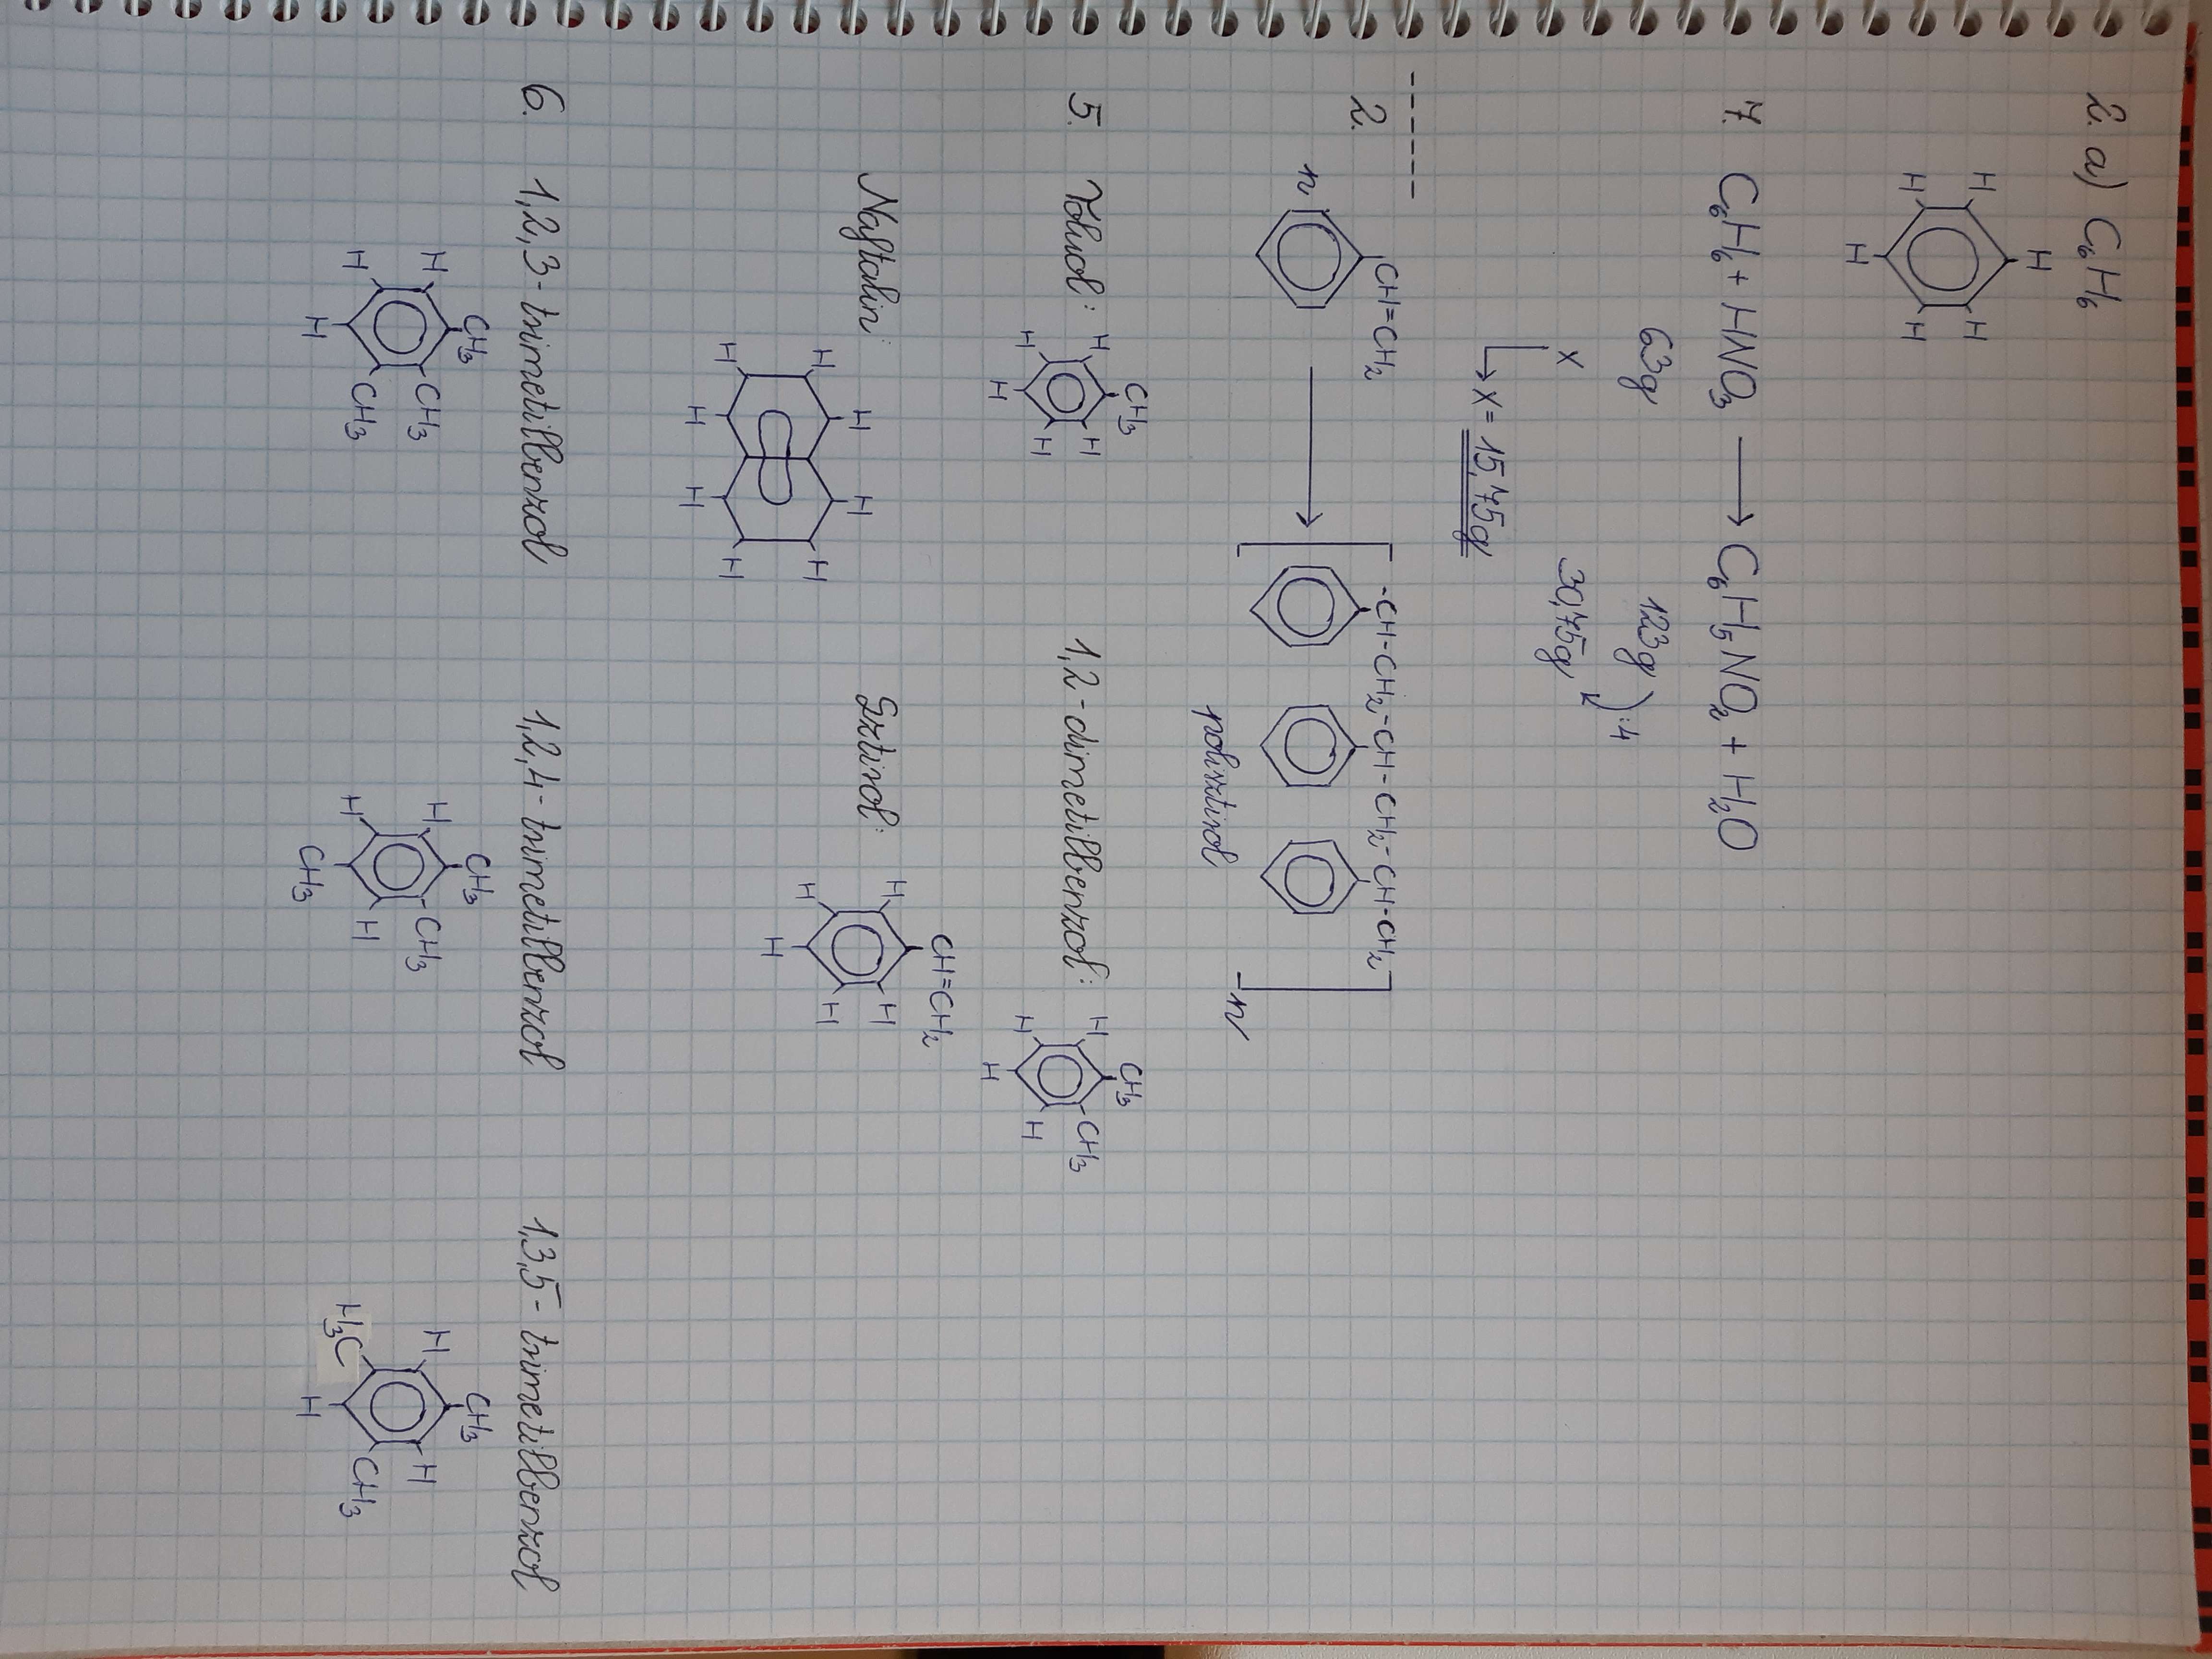 2. a) C₆H₆
H
H H
H H
H
7. C₆H₆ + HNO₃ → C₆H₅NO₂ + H₂O
63g 123g ) :4
x 30,75g
↳ x = 15,75g
-----
2. CH=CH₂ -CH-CH₂-CH-CH₂-CH-CH₂-
n → n
polisztirol
5. Toluol: CH₃ 1,2-dimetilbenzol: CH₃
H H H CH₃
H H H H
H H
Naftalin: Sztirol: CH=CH₂
H H H H
H H H H
H H H
H H
6. 1,2,3-trimetilbenzol 1,2,4-trimetilbenzol 1,3,5-trimetilbenzol
CH₃ CH₃ CH₃
H CH₃ H CH₃ H H
H CH₃ H H H₃C CH₃
H CH₃ H